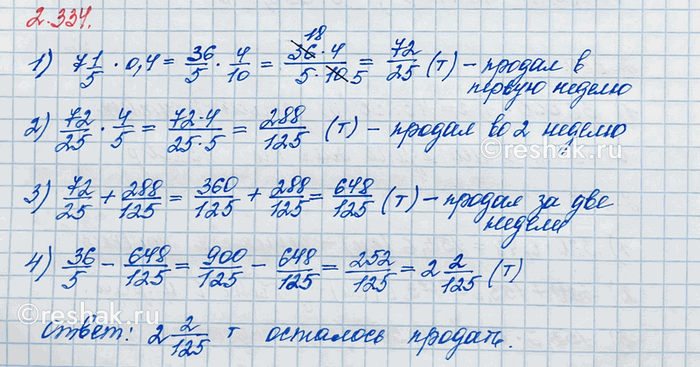 2.334.
1) 7 1/5 · 0,4 = 36/5 · 4/10 = 36 · 4 / 5 · 10 = 72/25 (т) – продал в
18
5
первую неделю
2) 72/25 · 4/5 = 72·4/25·5 = 288/125 (т) – продал во 2 неделю
3) 72/25 + 288/125 = 360/125 + 288/125 = 648/125 (т) – продал за две
недели
4) 36/5 – 648/125 = 900/125 – 648/125 = 252/125 = 2 2/125 (т)
Ответ: 2 2/125 т осталось продать.
©reshak.ru
©reshak.ru